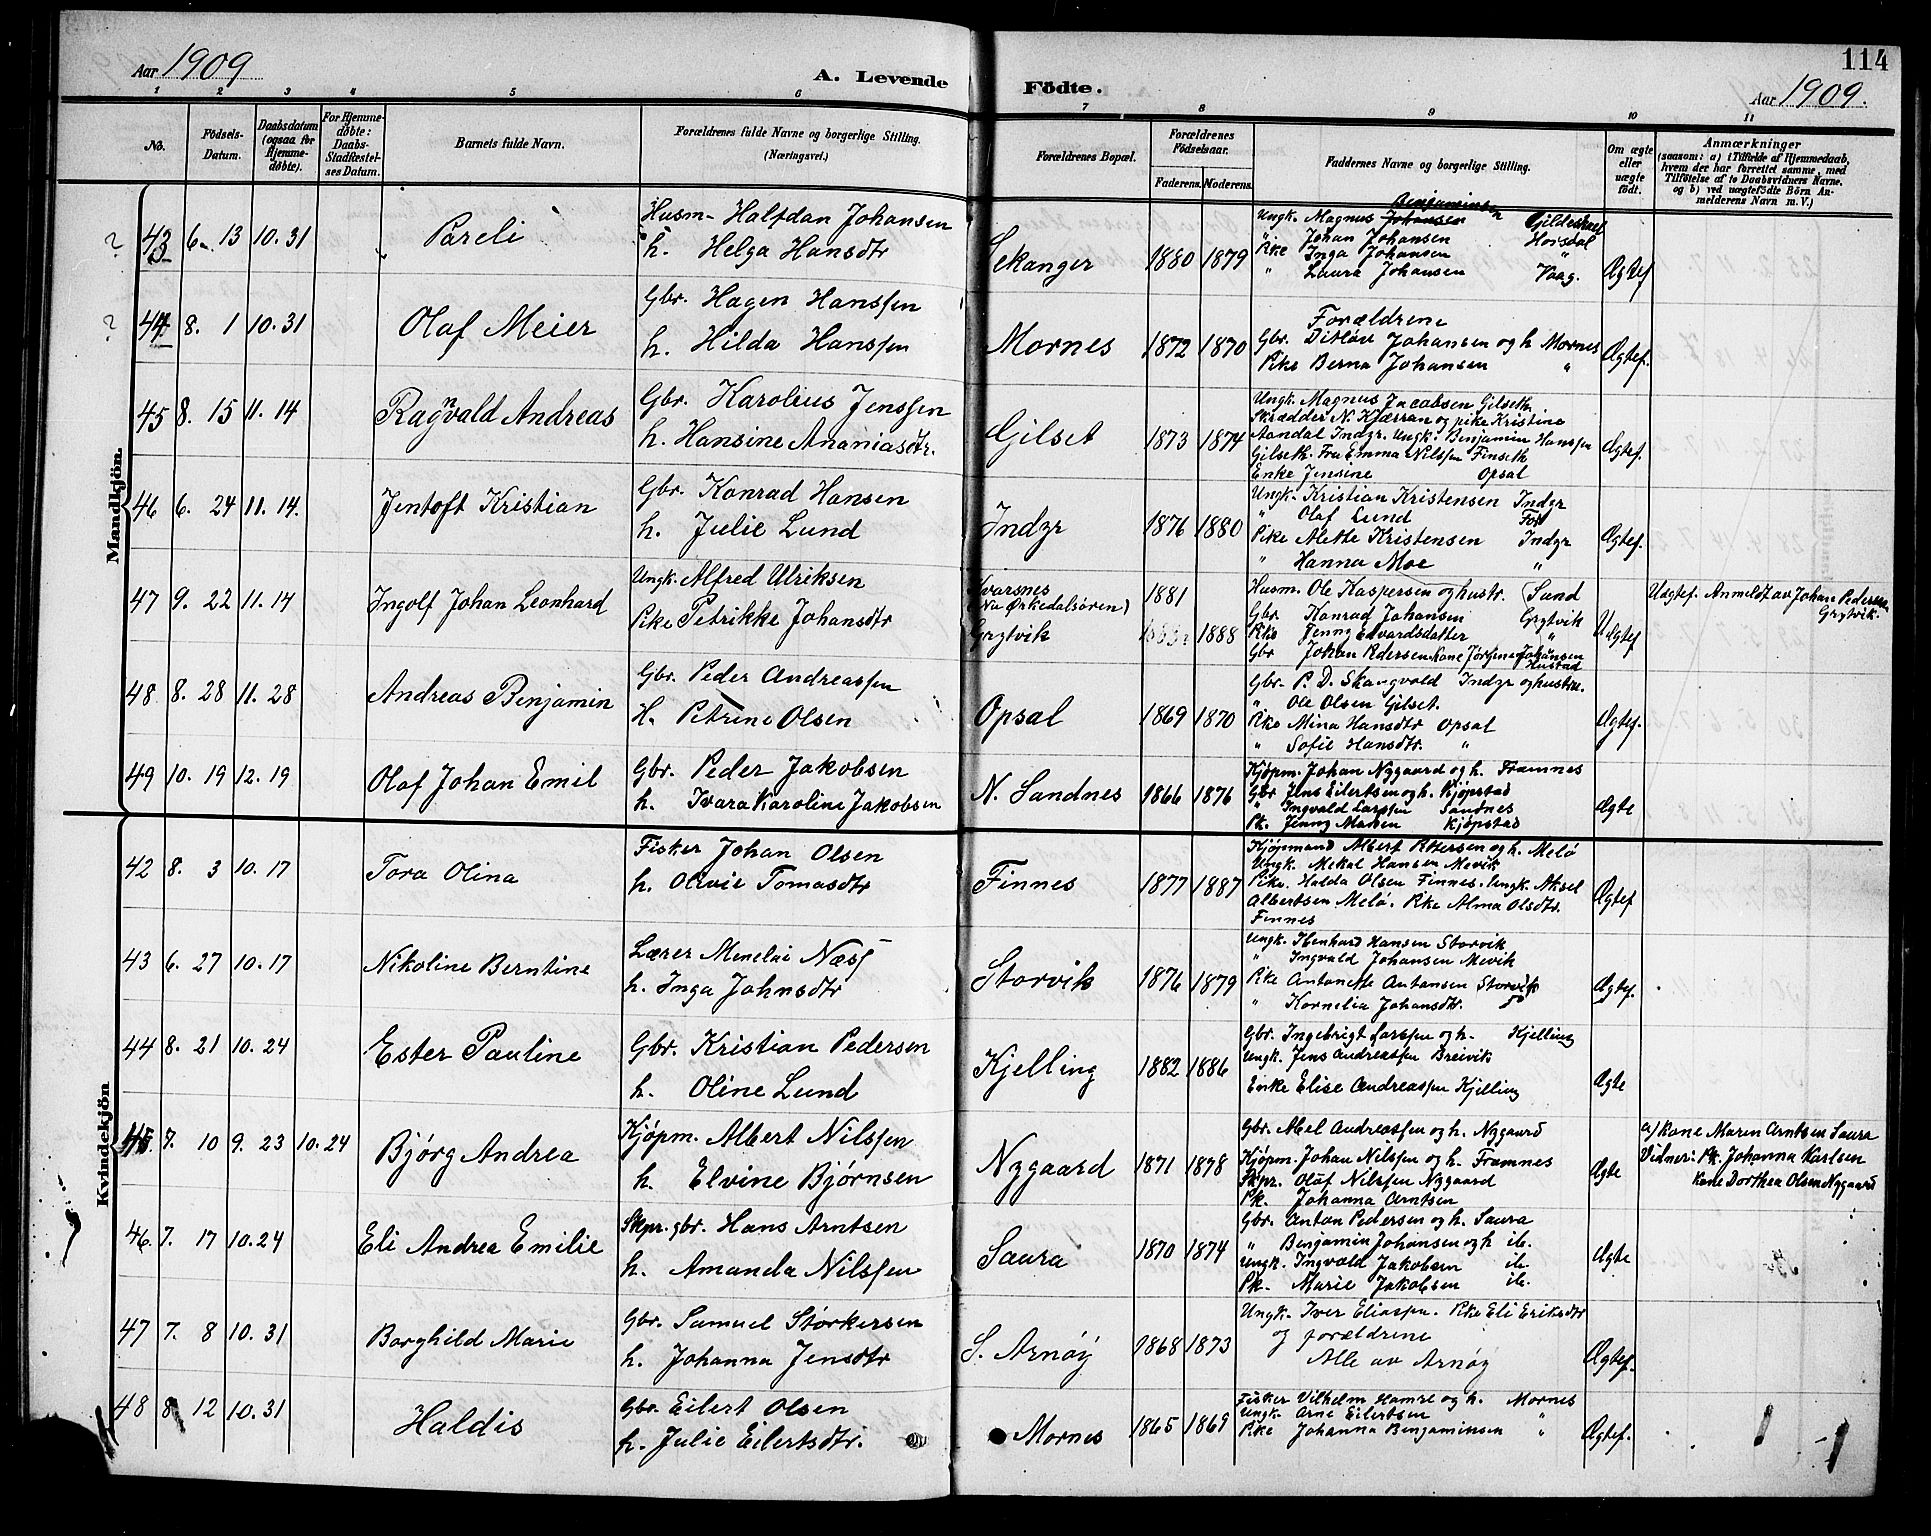 114
Aar 1909
A. Levende Födte.
Aar 1909.
1 2 3 4 5 6 7 8 9 10 11
No.
Födsels-Datum.
Daabsdatum (ogsaa for Hjemme-döbte).
For Hjemme-døbte: Daabs-Stadfæstel-ses Datum.
Barnets fulde Navn.
Forældrenes fulde Navne og borgerlige Stilling.
(Næringsvei.)
Forældrenes Bopæl.
Forældrenes Födselsaar.
Faderens. Moderens.
Faddernes Navne og borgerlige Stilling.
Om ægte eller uægte födt.
Anmærkninger
(saasom: a) i Tilfælde af Hjemmedaab,
hvem der har forrettet samme, med
Tilföielse af to Daabsvidners Navne.
og b) ved uægtefödte Börn An-
melderens Navn m. V.)
Mandkjön.
? 43 6. 13 10. 31 Pareli
Husm. Halfdan Johansen
h. Helga Hansdtr
Sekanger 1880 1879
Benjaminsen
Ungk. Magnus Johansen Gildeskaal
" Johan Johansen Horsdal
Pike Inga Johansen "
" Laura Johansen Vaag.
Ægtef
? 44 8. 1 10. 31 Olaf Meier
Gbr. Hagen Hanssen
h. Hilda Hanssen
Mornes 1872 1870
Forældrene
Gbr. Ditløv Johansen og h Mornes
Pike Berna Johansen "
Ægtef.
45 8. 15 11. 14 Ragnvald Andreas
Gbr. Karolius Jenssen
h. Hansine Ananiasdtr.
Gilset 1873 1874
Ungk. Magnus Jacobsen Gilseth.
Skrædder N. Kjærran og pike Kristine
Aandal Indyr. Ungk. Benjamin Hanssen
Gilseth. Fru Emma Nilssen Finseth
Enke Jensine Opsal
Ægtef.
46 6. 24 11. 14. Jentoft Kristian
Gbr. Konrad Hansen
h. Julie Lund
Indyr 1876 1880
Ungk. Kristian Kristensen Indyr
" Olaf Lund For
Pike Alette Kristensen Indyr
" Hanna Moe "
Ægtef.
47 9. 22 11. 14 Ingolf Johan Leonhard
Ungk. Alfred Ulriksen
Pike Petrikke Johansdtr
Kvarsnes
(Nu Orkedalsøren)
Grytvik
1881
1888
Husm. Ole Kaspersen og hustr. Sund
Gbr. Konrad Johansen Grytvik
Pike Jenny Edvardsdatter "
Gbr Johan Pedersen Kone Jørgine Johansen
Hustad
Uægtef
Uægtef. Anmeldt av Johan Pedersen
Grytvik.
48 8. 28 11. 28 Andreas Benjamin
Gbr. Peder Andreassen
H. Petrine Olsen
Opsal 1869 1870
Gbr. P. D. Skangvold Indyr og hustru.
" Ole Olsen Gilset.
Pike Mina Hansdtr Opsal
" Sofie Hansdtr. "
Ægtef.
49 10. 19 12. 19 Olaf Johan Emil
Gbr. Peder Jakobsen
h. Ivara Karoline Jakobsen
N. Sandnes 1866 1876
Kjøpm. Johan Nygaard og h. Framnes
Gbr Jens Eilertsen og h. Kjøpstad
" Ingvald Larssen Sandnes
Pk. Jenny Madsen Kjøpstad
Ægte
Kvindekjön
42 8. 3 10. 17 Tora Olina
Fisker Johan Olsen
h. Olivie Tomasdtr
Finnes 1877 1887
Kjøpmand Albert Petersen og h. Melö
Ungk. Mekal Hansen Mevik
Pike. Halda Olsen Finnes. Ungk. Aksel
Albertsen Melö. Pike Alma Olsdtr.
Finnes
Ægtef
43 6. 27 10. 17 Nikoline Berntine
Lærer Menelai Næss
h. Inga Johnsdtr
Storvik 1876 1879
Ungk. Ibenhard Hansen Storvik
" Ingvald Johansen Mevik
Pike Antonette Antonsen Storvik
" Kornelia Johansdtr. do
Ægtef.
44 8. 21 10. 24 Ester Pauline
Gbr. Kristian Pedersen
h. Oline Lund
Kjelling 1882 1886
Gbr. Ingebrigt Larssen og h. Kjelling
Ungk. Jens Andreassen Breivik
Enke Elise Andreassen Kjelling
Ægte
45 7. 10 9. 23 10. 24 Bjørg Andrea
Kjøpm. Albert Nilssen
h. Elvine Bjørnsen
Nygaard 1871 1878
Gbr. Abel Andreassen og h. Nygaard
Kjøpm. Johan Nilssen og h. Framnes
Skpr. Olaf Nilssen Nygaard
Pk. Johanna Arntsen
Ægte
a) Kone Maren Arntsen Saura
Vidner: Pk. Johanna Karlsen
Kone Dorthea Olsen Nygaard
46. 7. 17 10. 24 Eli Andrea Emilie
Skpr. gbr. Hans Arntsen
h. Amanda Nilssen
Saura 1870 1874
Gbr. Anton Pedersen og h. Saura
" Benjamin Johansen og h ib.
Ungk. Ingvald Jakobsen ib.
Pk. Marie Jakobsen ib.
Ægte
47 7. 8 10. 31 Borghild Marie
Gbr. Samuel Størkersen
h. Johanna Jensdtr
S. Arnøy 1868 1873
Ungk. Iver Eliassen. Pike Eli Eriksdtr
og forældrene
Alle av Arnøy
Ægtef.
48 8 12 10. 31 Haldis
Gbr. Eilert Olsen
h. Julie Eilertsdtr.
Mornes 1865 1869
Fisker Vilhelm Hamre og h. Mornes
Ungk. Arne Eilertsen "
Pike Johanna Benjaminsen "
Ægtef.